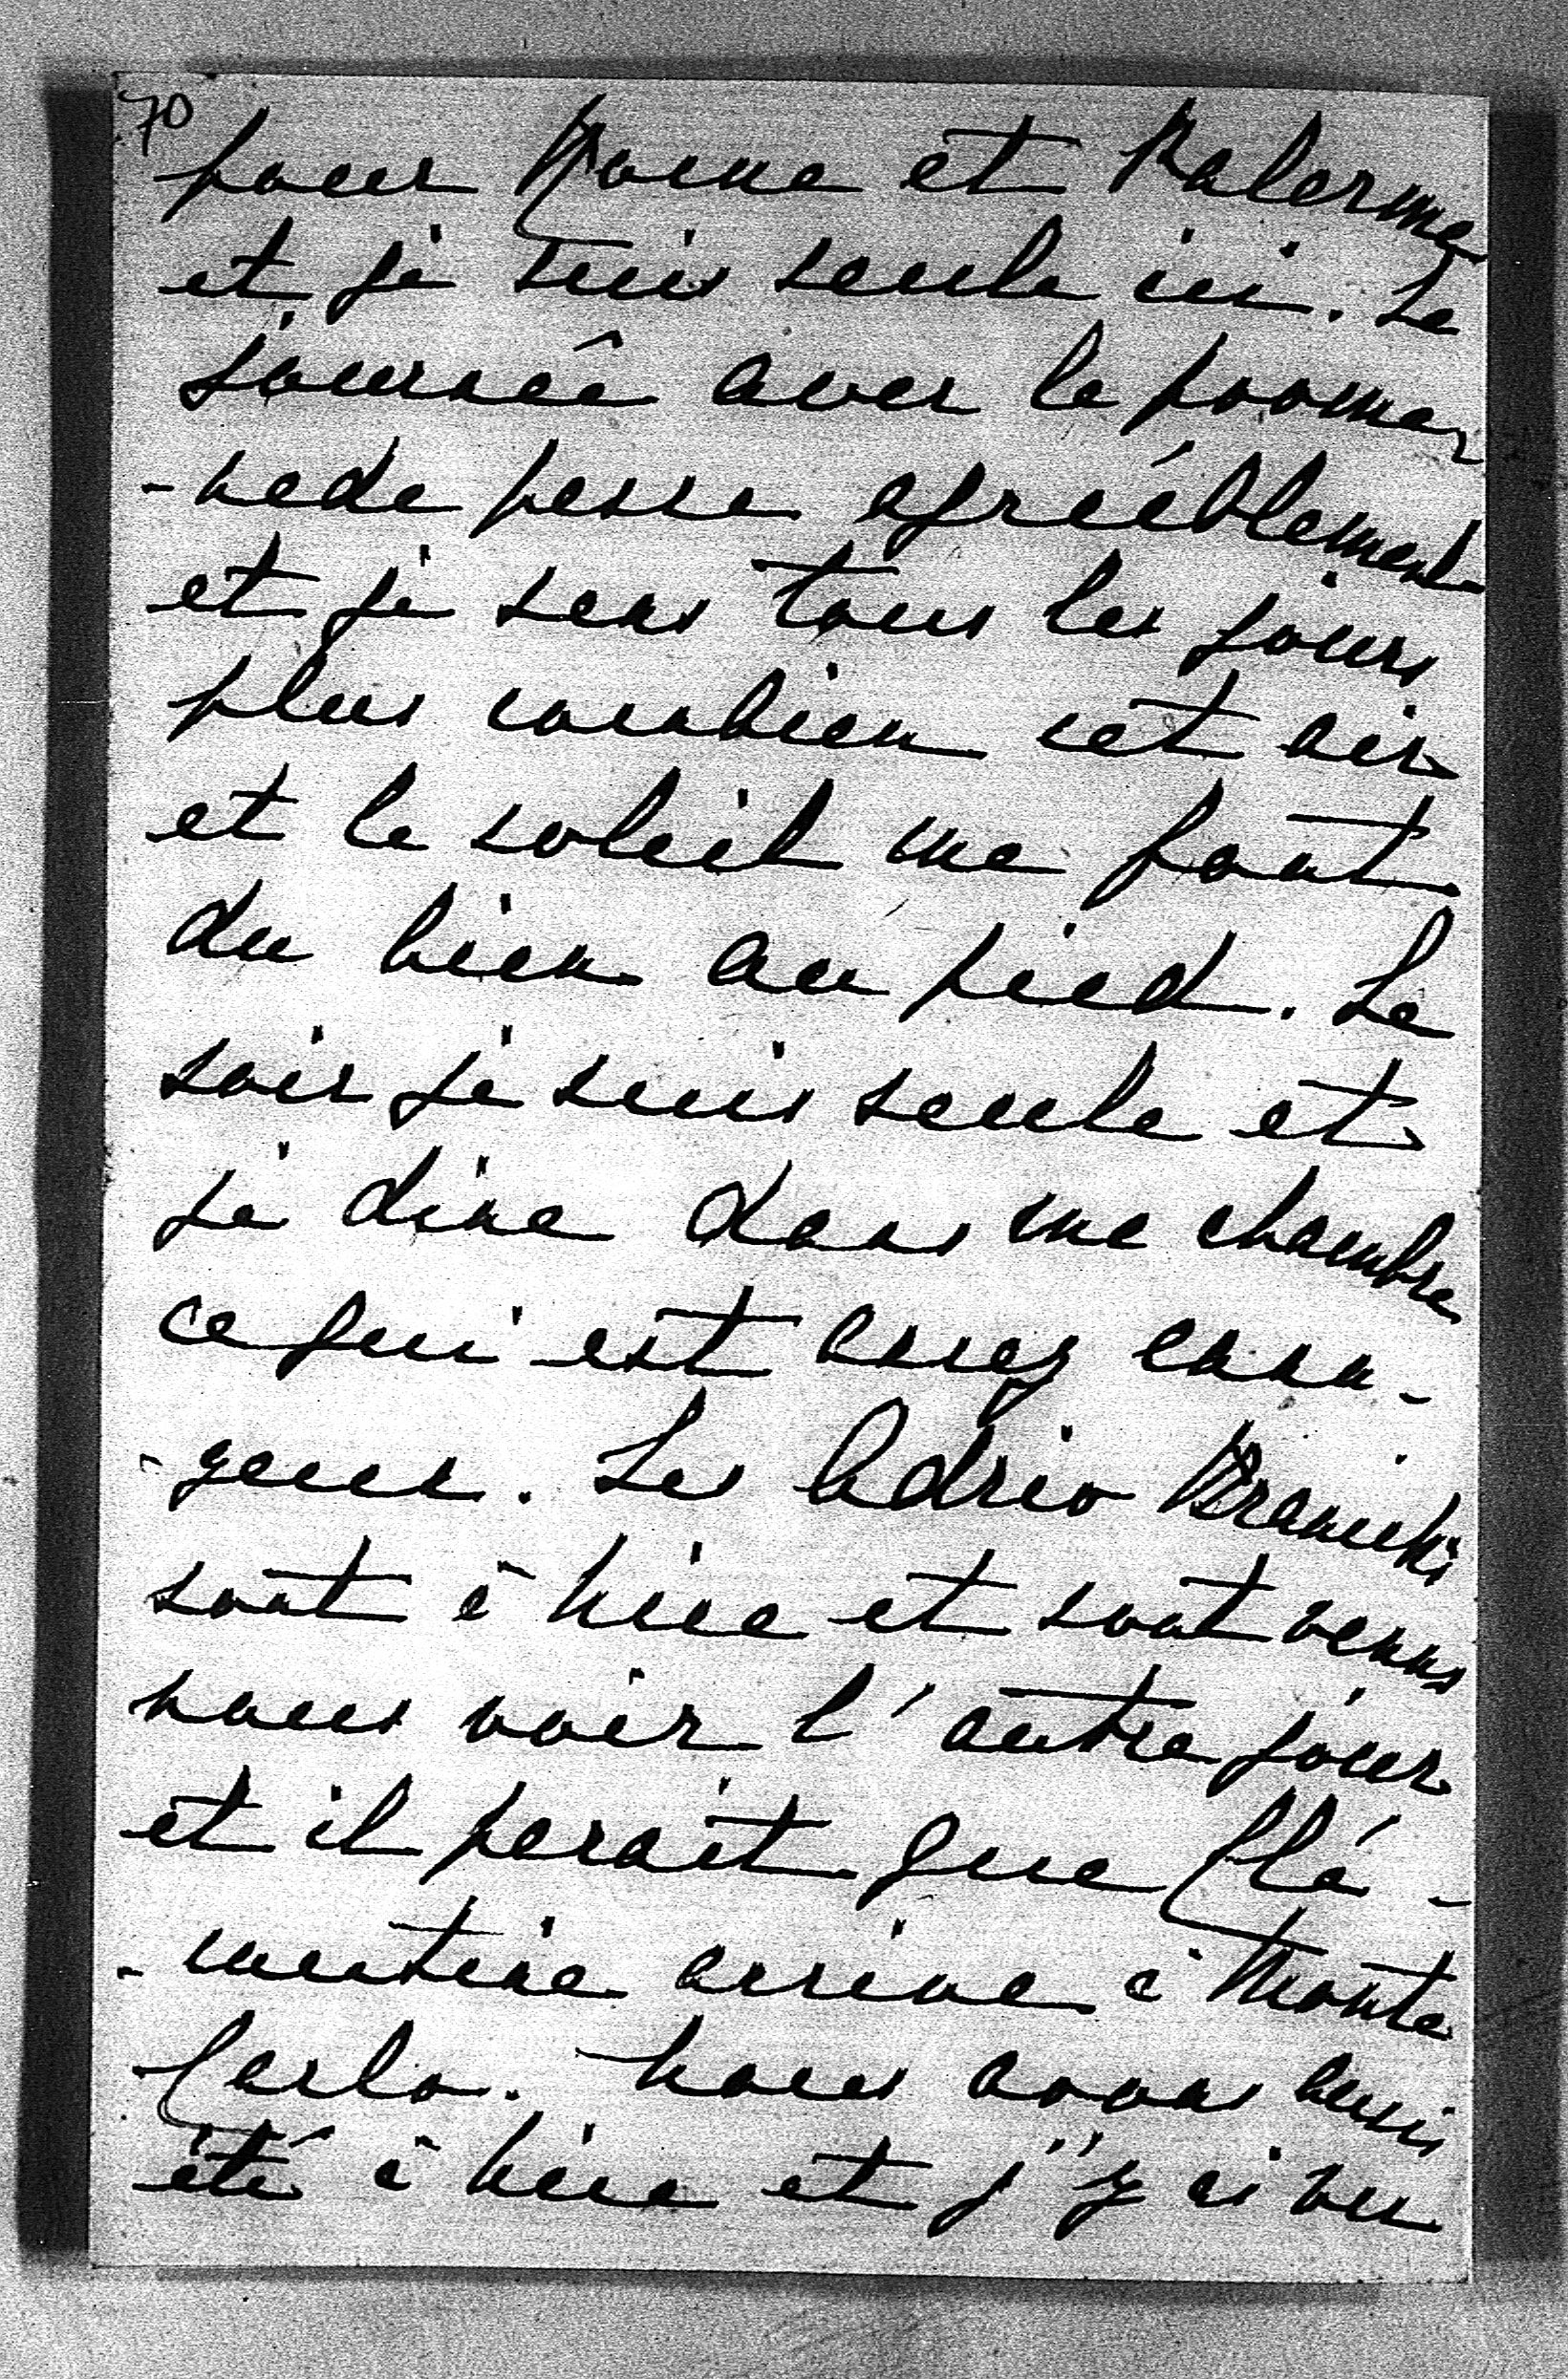 70
pour Rome et Palerme
et je suis seule ici. La
journée avec la prome
-nade passe agréablement
et je sens tous les jours
plus combien cet air
et le soleil me font
du bien au pied. Le
soir je suis seule et
je dine dans ma chambre
ce qui est assez ennu-
-yeux. Les Adrio Branicki
sont à Nice et sont venus
nous voir l'autre jour
et il parait que Clé-
-mentine arrive à Monte
Carlo. Nous avons aussi
été à Nice et j'y ai vu